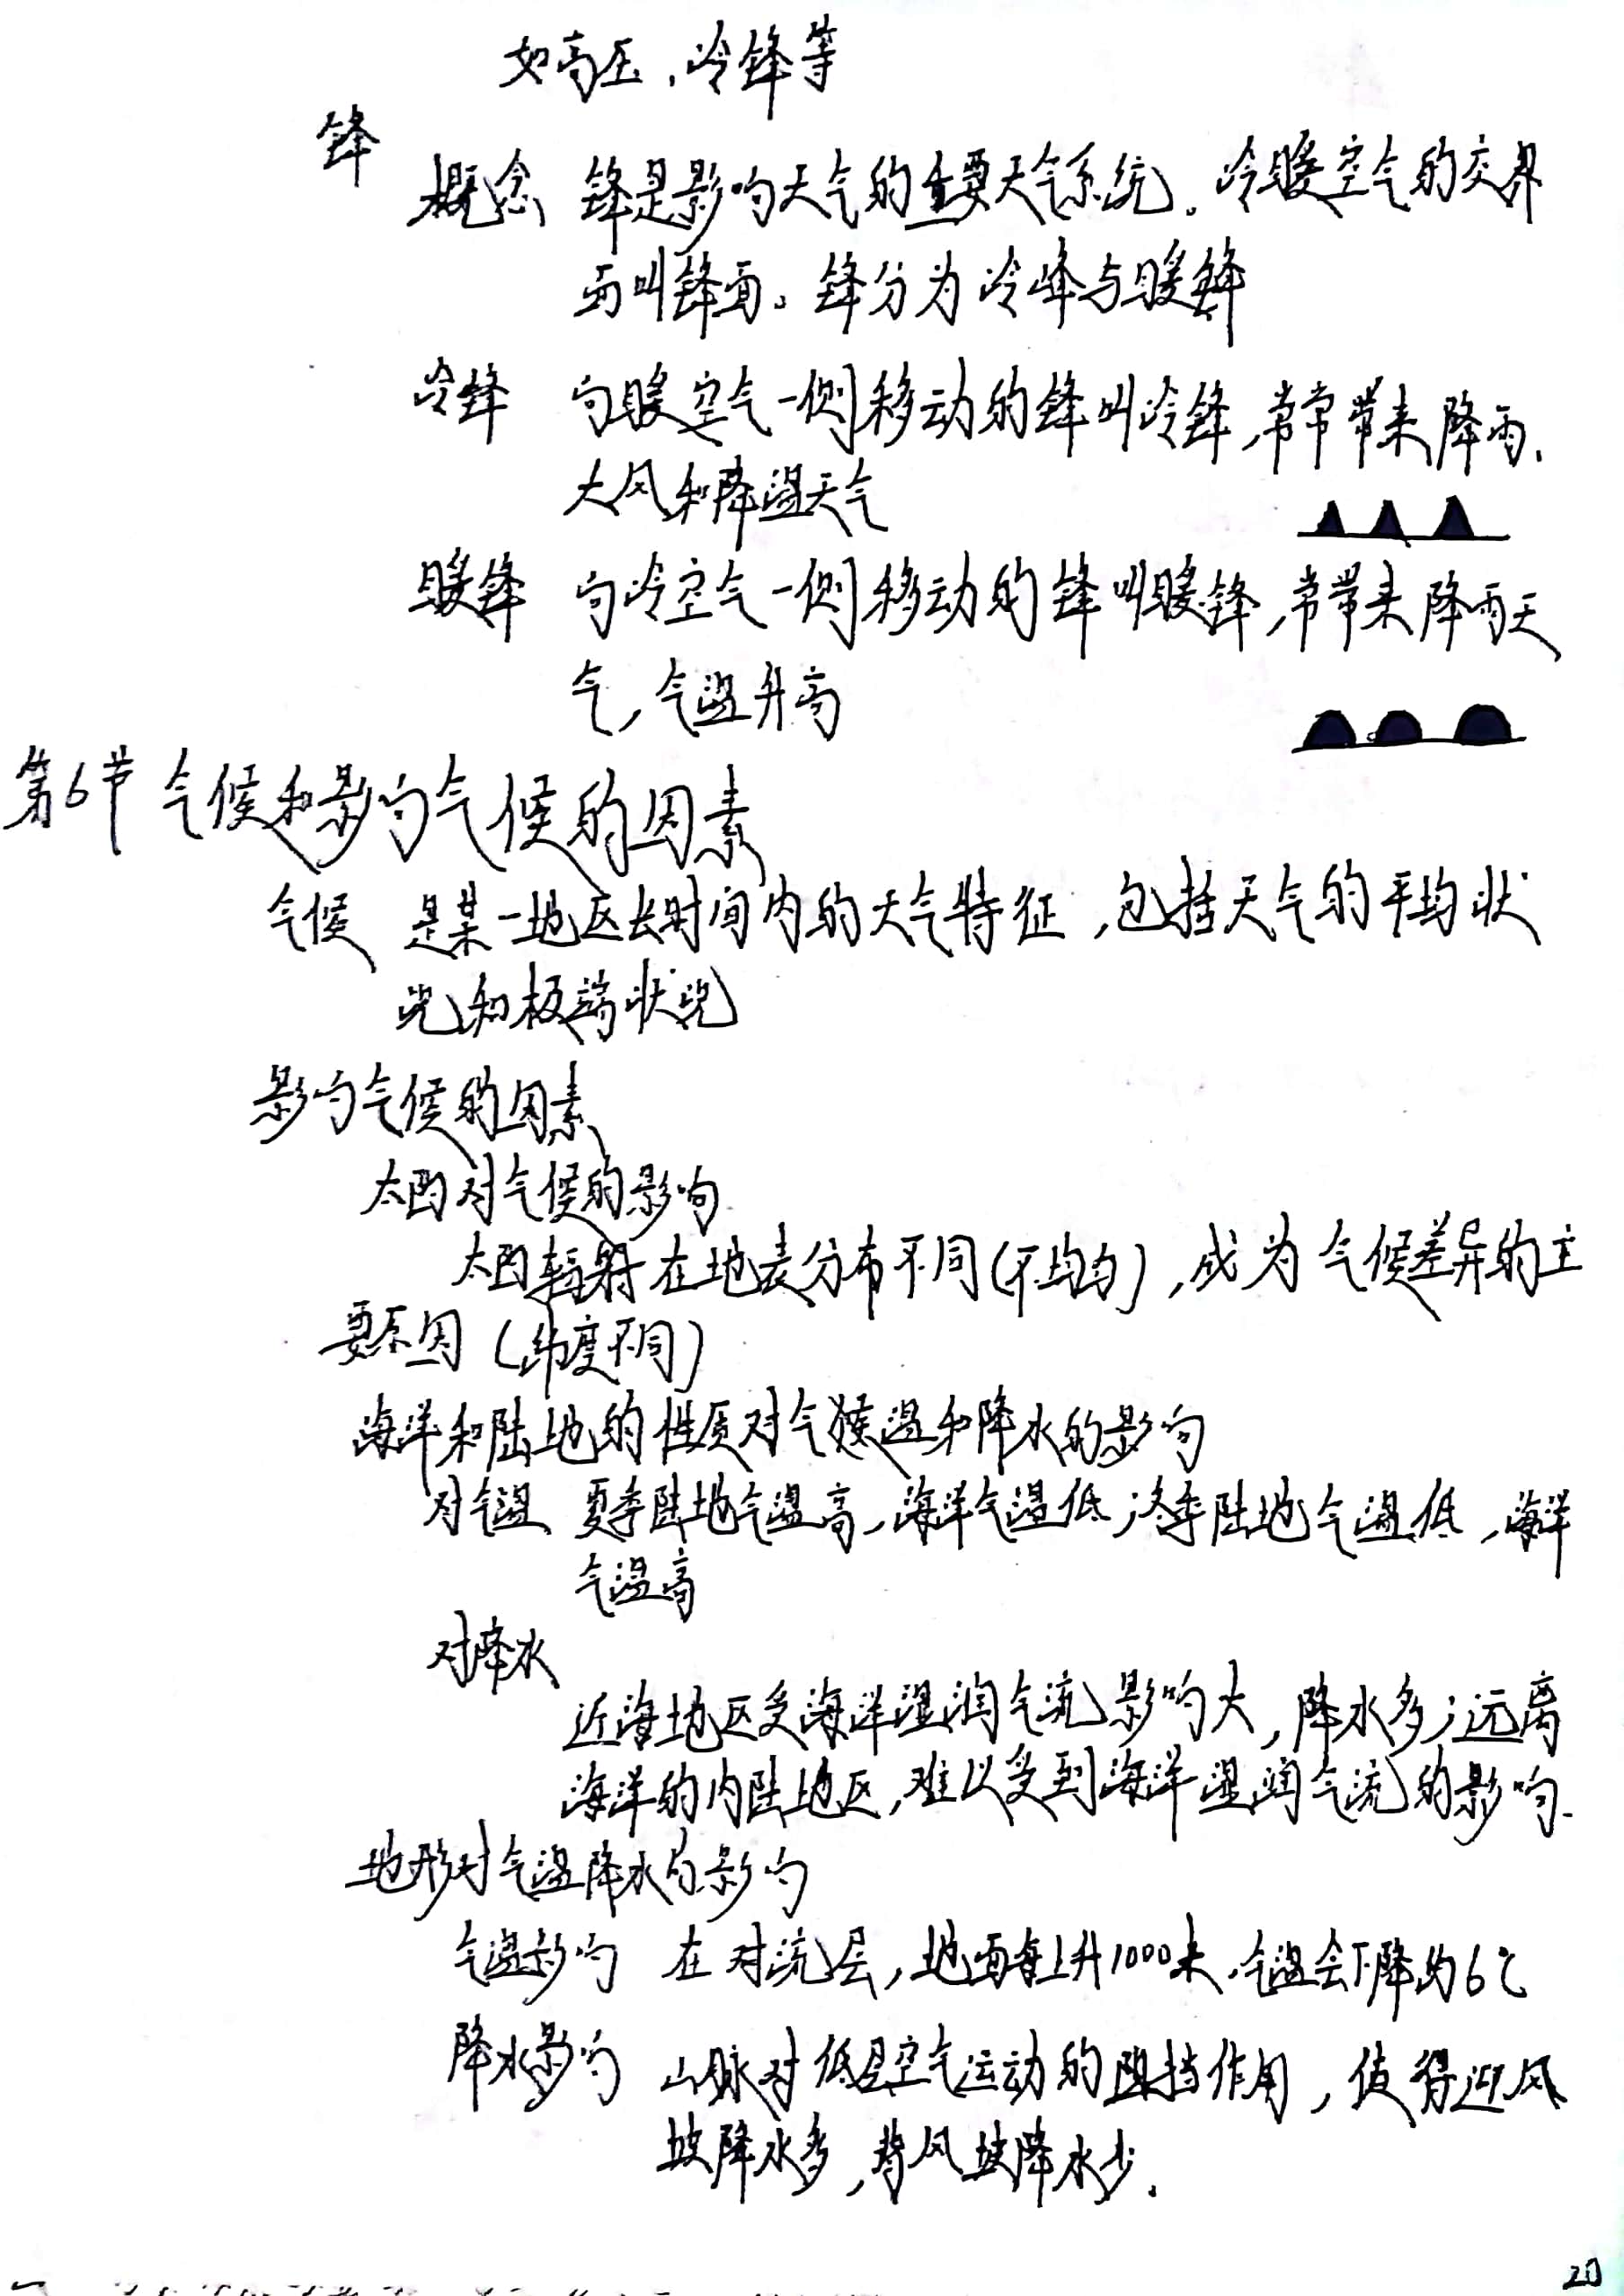 如高压、冷锋等
锋
概念 锋是影响天气的重要天气系统。冷暖空气的交界
面叫锋面。锋分为冷峰与暖锋
冷锋 向暖空气一侧移动的锋叫冷锋,常常带来降雨、
大风和降温天气
暖锋 向冷空气一侧移动的锋叫暖锋,常带来降雨天
气,气温升高
第6节 气候和影响气候的因素
气候 是某一地区长时间内的天气特征,包括天气的平均状
况和极端状况
影响气候的因素
太阳对气候的影响
太阳辐射在地表分布不同(不均匀),成为气候差异的主
要原因(纬度不同)
海洋和陆地的性质对气温和降水的影响
对气温 夏季陆地气温高,海洋气温低;冬季陆地气温低,海洋
气温高
对降水
近海地区受海洋湿润气流影响大,降水多;远离
海洋的内陆地区,难以受到海洋湿润气流的影响.
地形对气温降水的影响
气温影响 在对流层,地面每上升1000米,气温会下降约6℃
降水影响 山脉对低层空气运动的阻挡作用,使得迎风
坡降水多,背风坡降水少.
20